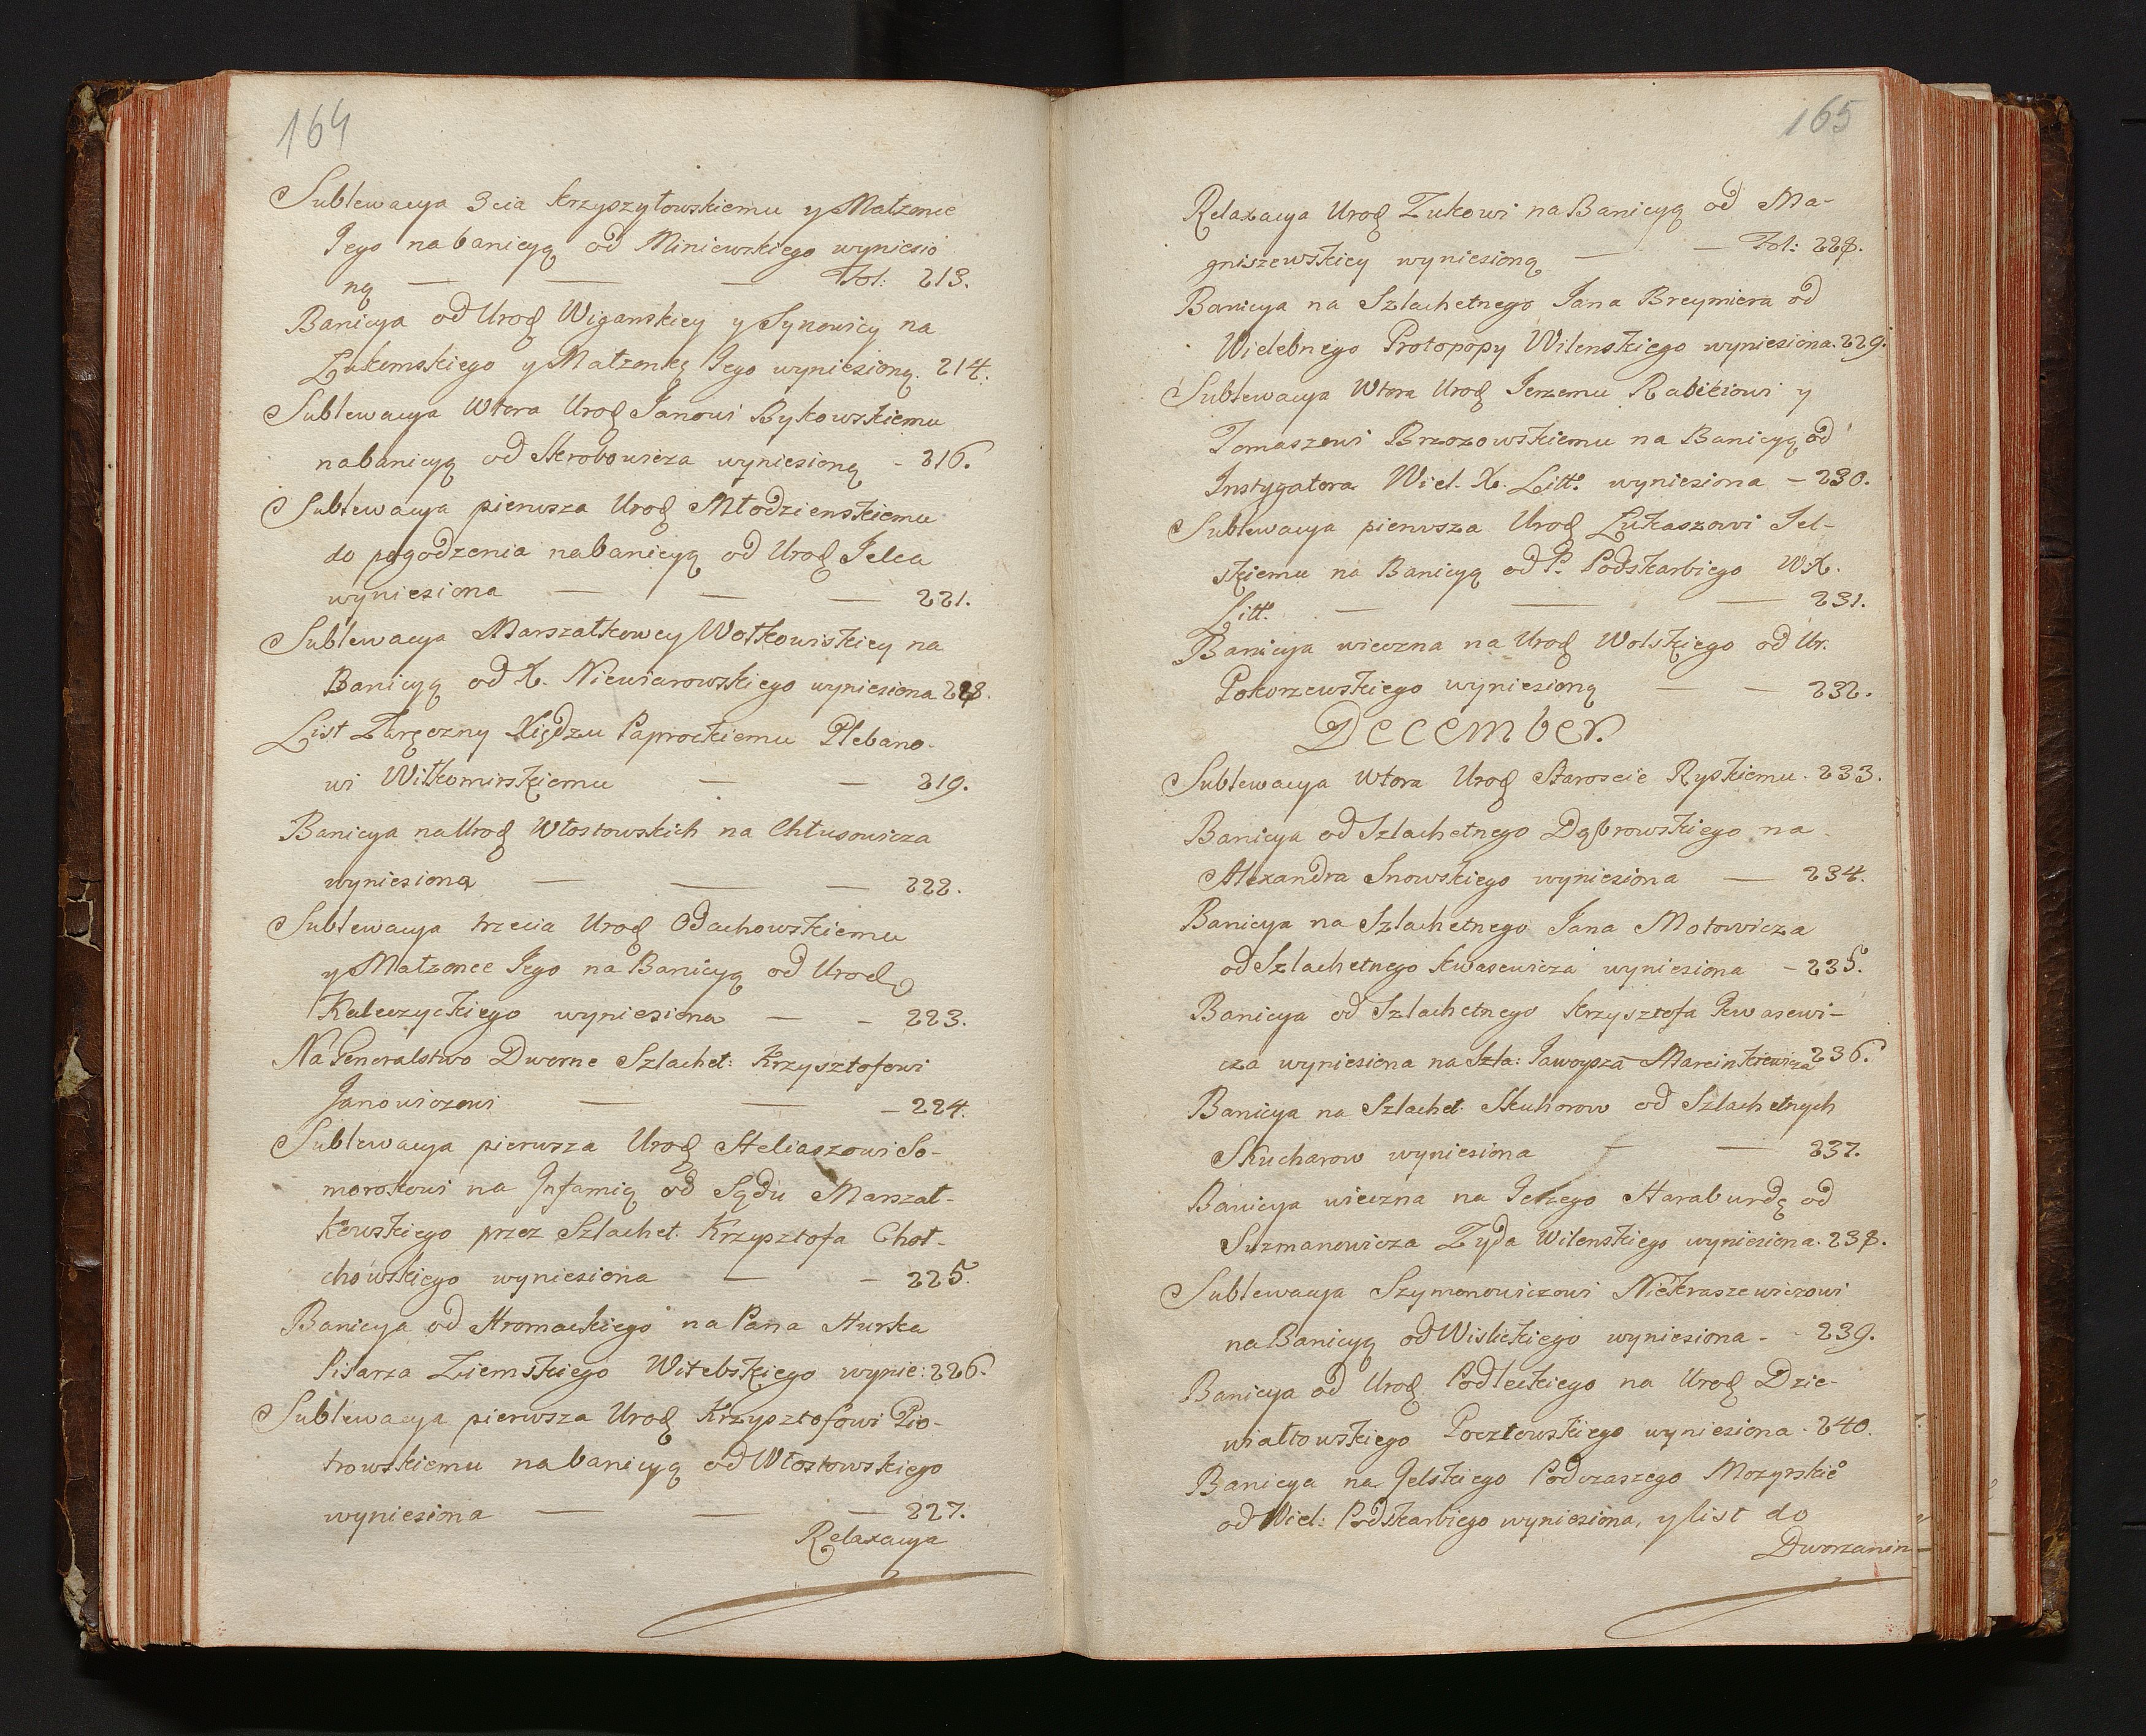 164
Sublewacya 3cia Krzyszyłowskiemu y Małzonce
Jego na banicyą od Miniewskiego wyniesio
ną — — — Fol: 213.
Banicya od Urodz Wiganskiey y Synowicy na
Łukomskiego y Małzonkę Jego wyniesioną. 214.
Sublewacya Wtora Urodz Janowi Bykowskiemu
nabanicyą od Skrobowicza wyniesioną - 216.
Sublewacya pierwsza Urodz Młodzienskiemu
do pogodzenia nabanicyą od Urodz Jelca
wyniesiona — — — 221.
Sublewacya Marszałkowey Wołkowiskiey na
Banicyą od X. Niewiarowskiego wyniesiona 218.
List Zaręczny Xiędzu Paprockiemu Plebano-
wi Wiłkomirskiemu — — 219.
Banicya na Urodz Włostowskich na Chłusowicza
wyniesiona — — — 222.
Sublewacya trzecia Urodz Odachowskiemu
y Małzonce Jego na Banicyą od Urodz
Kaleczyckiego wyniesiona — - 223.
Na Generalstwo Dworne Szlachet: Krzysztofowi
Janowiczowi — — - 224.
Sublewacya pierwsza Urodz Heliaszowi So-
morokowi na Infamią od Sądu Marszał-
kowskiego przez Szlachet. Krzysztofa Choł-
chowskiego wyniesiona — - 225.
Banicya od Hromackiego na Pana Hurka
Pisarza Ziemskiego Witebskiego wynie: 226.
Sublewacya pierwsza Urodz Krzysztofowi Pio-
trowskiemu nabanicyą od Włostowskiego
wyniesiona — — — 227.
Relaxacya
165
Relaxacya Urodz Zukowi na Banicyą od Ma-
gniszewskiey wyniesioną — — Fol: 228.
Banicya na Szlachetnego Jana Breymera od
Wielebnego Protopopy Wilenskiego wyniesiona. 229.
Sublewacya Wtora Urodz Jerzemu Rabikiowi y
Tomaszowi Brzozowskiemu na Banicyą od
Instygatora Wiel. X. Litt. wyniesiona - 230.
Sublewacya pierwsza Urodz Łukaszowi Jel-
skiemu na Banicyą od P. Podskarbiego W.X.
Litt. — — — 231.
Banicya wieczna na Urodz Wolskiego od Ur.
Pokorzewskiego wyniesioną — — 232.
December.
Sublewacya Wtora Urodz Staroscie Ryskiemu. 233.
Banicya od Szlachetnego Dąbrowskiego na
Alexandra Snowskiego wyniesiona — 234.
Banicya na Szlachetnego Jana Motowicza
od Szlachetnego Kwasewicza wyniesiona - 235.
Banicya od Szlachetnego Krzysztofa Kwasewi-
cza wyniesiona na Szla: Jaworsza Marcinkiewicza 236.
Banicya na Szlachet. Skuhorow od Szlachetnych
Skucharow wyniesiona — — 237.
Banicya wieczna na Jerzego Haraburdę od
Suzmanowicza Zyda Wilenskiego wyniesiona. 238.
Sublewacya Szymonowiczowi Niekraszewiczowi
na Banicyą od Wislickiego wyniesiona - - 239.
Banicya od Urodz Podleckiego na Urodz Dzie-
wiałtowskiego Poczłowskiego wyniesiona. 240.
Banicya na Jelskiego Podczaszego Mozyrskie
od Wiel: Podskarbiego wyniesiona, y list do
Dworzanin-